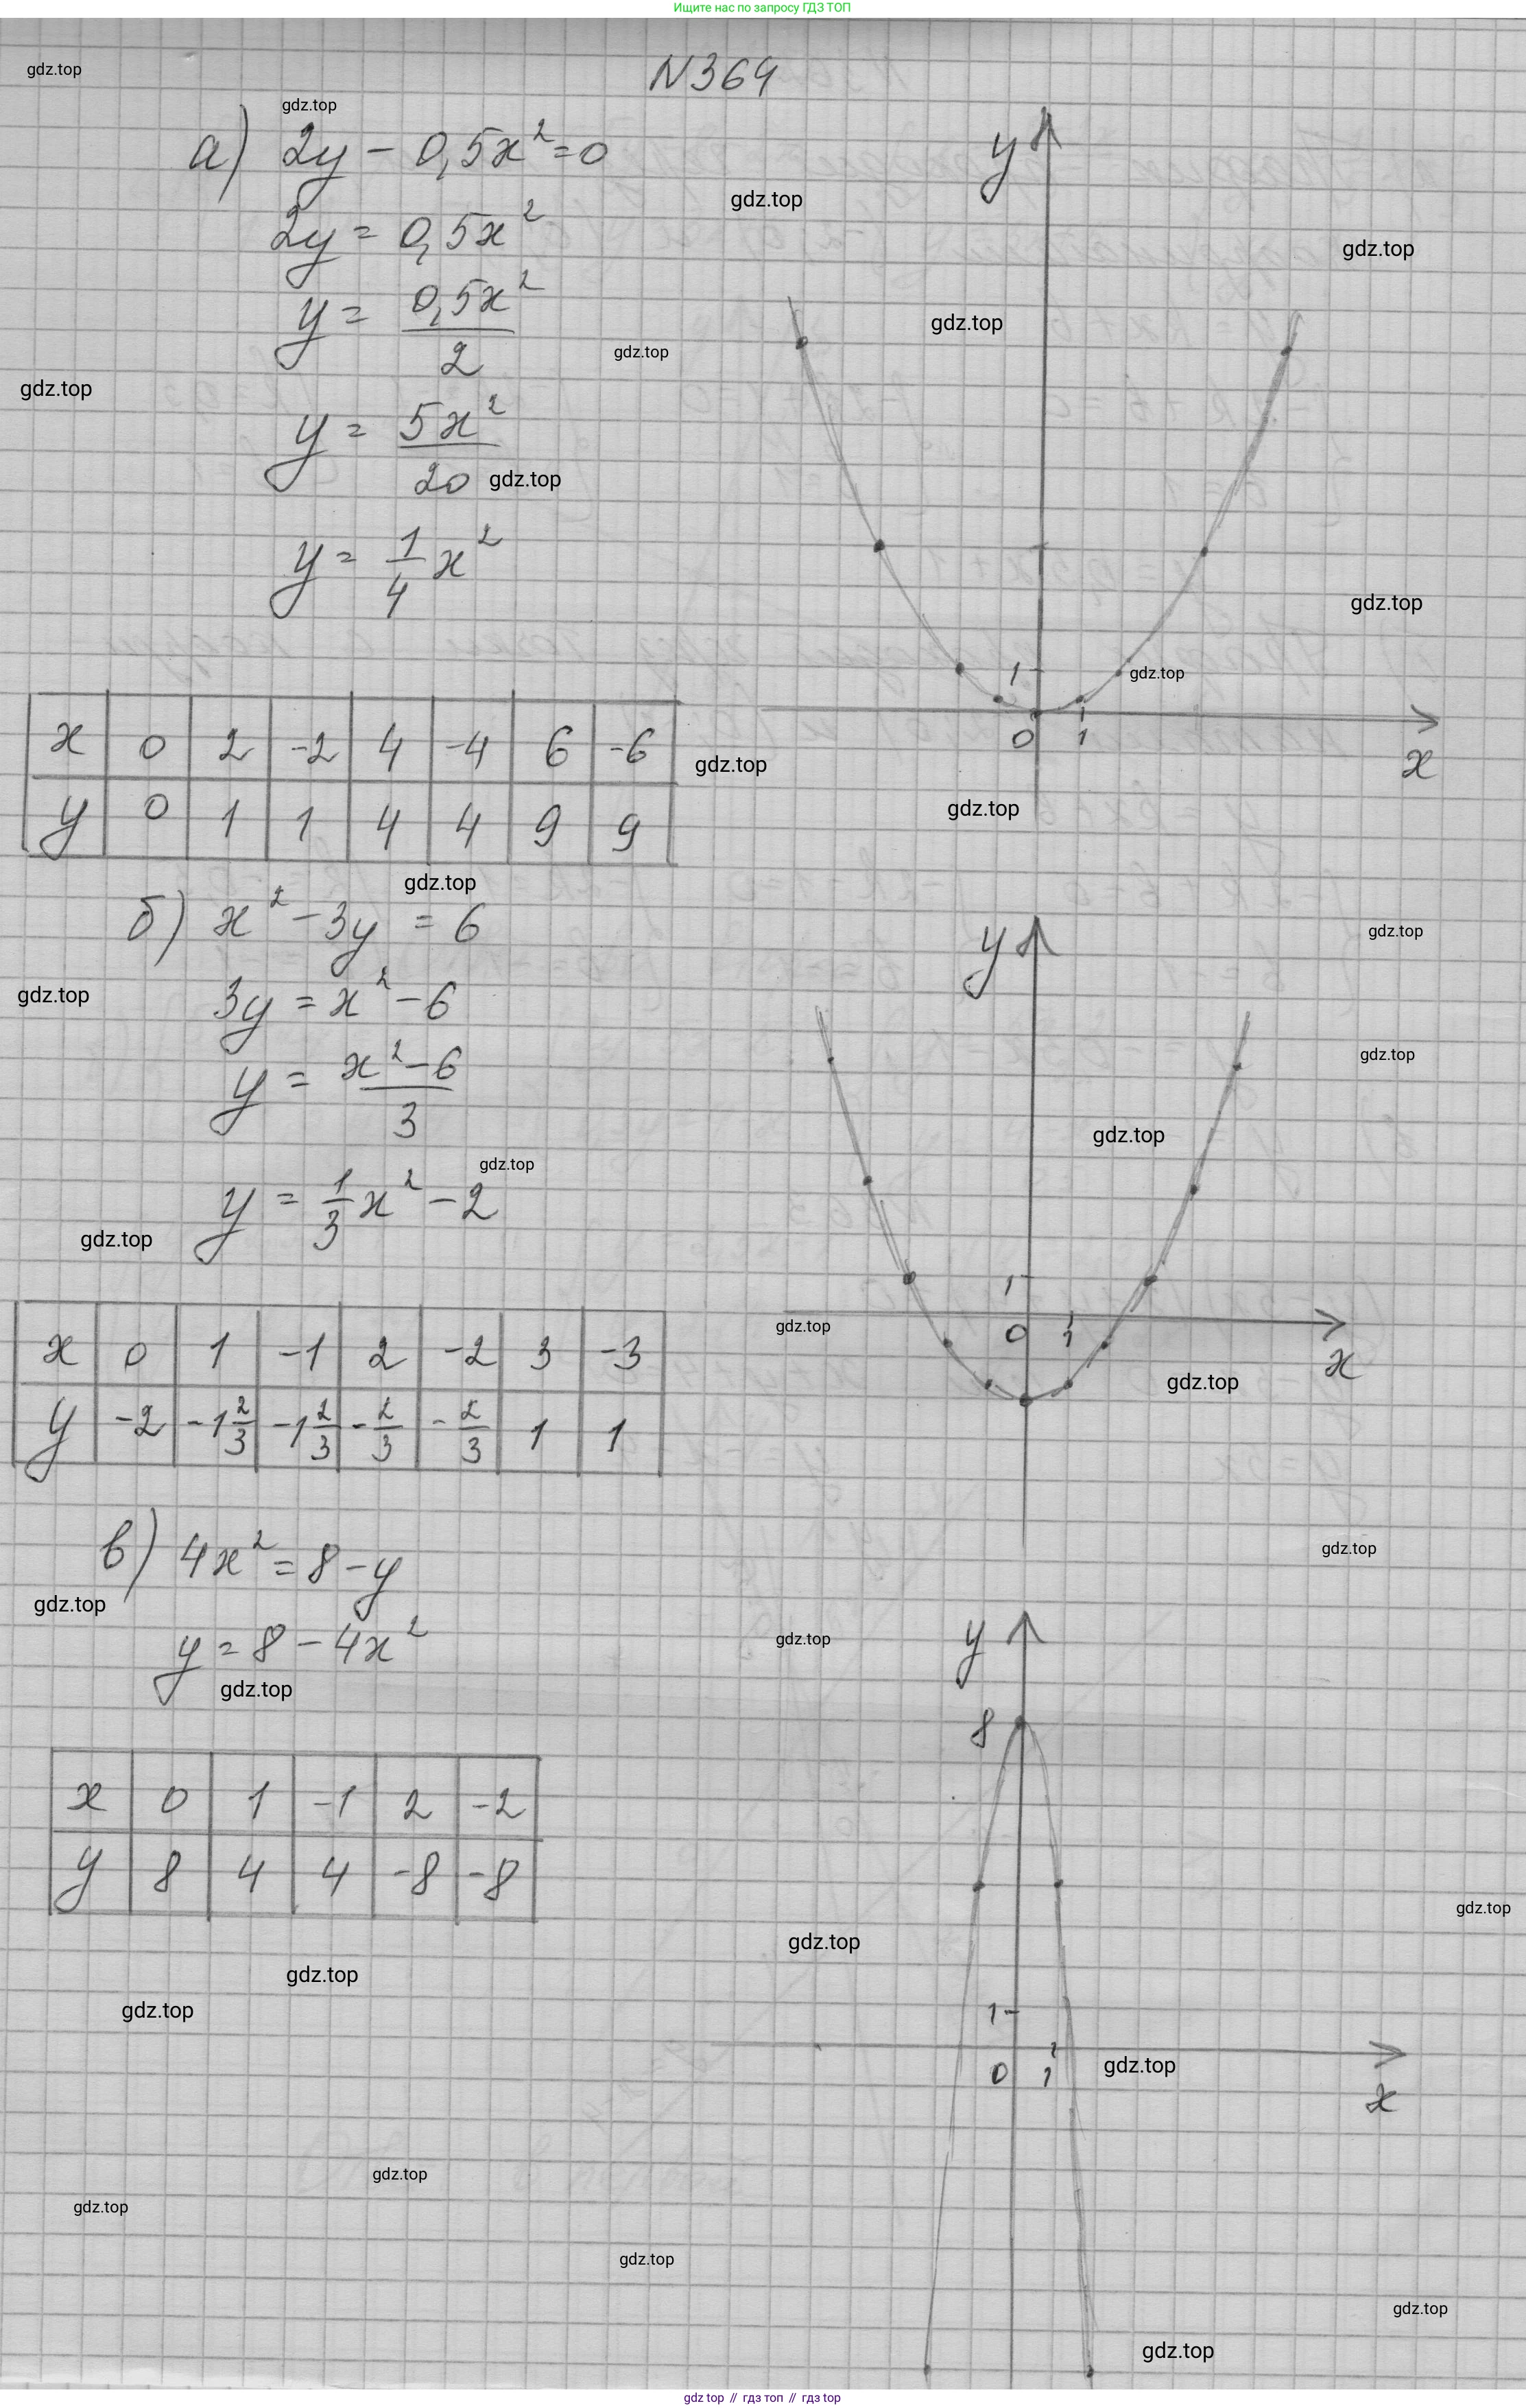 Ищите нас по запросу ГДЗ ТОП
N364
gdz.top
gdz.top
а) 2y - 0,5x² = 0
y
gdz.top
2y = 0,5x²
gdz.top
y = 0,5x² / 2
gdz.top
gdz.top
gdz.top
y = 5x² / 20
gdz.top
y = 1/4 x²
gdz.top
1
gdz.top
0 1
x
x 0 2 -2 4 -4 6 -6
y 0 1 1 4 4 9 9
gdz.top
gdz.top
gdz.top
б) x² - 3y = 6
y
gdz.top
gdz.top
3y = x² - 6
y = x² - 6 / 3
gdz.top
gdz.top
gdz.top
y = 1/3 x² - 2
gdz.top
1
gdz.top
0 1
x
gdz.top
x 0 1 -1 2 -2 3 -3
y -2 -1 2/3 -1 2/3 -2/3 -2/3 1 1
в) 4x² = 8 - y
gdz.top
gdz.top
y = 8 - 4x²
gdz.top
y
gdz.top
8
x 0 1 -1 2 -2
y 8 4 4 -8 -8
gdz.top
gdz.top
gdz.top
gdz.top
1
0 1
gdz.top
x
gdz.top
gdz.top
gdz.top
gdz.top
gdz.top
gdz top // гдз топ // гдз top